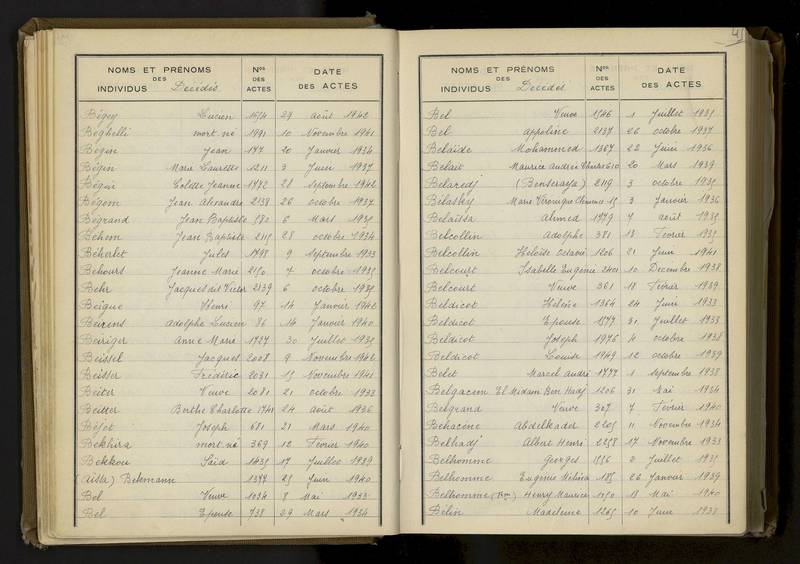 NOMS ET PRÉNOMS DES INDIVIDUS Décédés
Nos DES ACTES
DATE DES ACTES
Bégey Lucien 1574 29 août 1942
Béghelli mort né 1991 10 Novembre 1941
Bégin Jean 177 20 Janvier 1934
Bégin Marie Laurette 1211 3 Juin 1937
Colette Jeanne 1772 28 Septembre 1942
Bégom Jean 2138 26 octobre 1937
Bégrand Jean Baptiste 580 6 Mars 1935
Béhem Jean Baptiste 2115 28 octobre 1934
Jules 1798 9 Septembre 1933
Béhours Jeanne Marie 2150 7 octobre 1935
Behr Jacques dit Victor 2139 6 octobre 1935
Beigue Henri 97 14 Janvier 1942
Beirens Adolphe Lucien 86 14 Janvier 1940
Beiriger Anne Marie 1727 30 Juillet 1935
Beissel Jacques 2008 9 Novembre 1942
Beisser Frédéric 2031 15 Novembre 1941
Beiter Veuve 2081 21 octobre 1933
Berthe Charlotte 1741 24 août 1936
Béjot Joseph 681 21 Mars 1940
Békhira mort né 369 12 Février 1940
Bekkou Saïd 1435 17 Juillet 1939
(Aisle) Bekmann 1377 25 Juin 1940
Bel Veuve 1034 8 Mai 1933
Bel Epouse 738 29 Mars 1934
41
NOMS ET PRÉNOMS DES INDIVIDUS Décédés
Nos DES ACTES
DATE DES ACTES
Bel Veuve 1546 1 Juillet 1935
Bel appoline 2137 26 octobre 1937
Belaïde Mohammed 1367 22 Juin 1936
Belait Maurice André 610 20 Mars 1939
Belaredj (Benseraya) 2119 3 octobre 1935
Bélasky Marie Véronique Clémence 15 3 Janvier 1936
Belaïssa Ahmed 1779 7 août 1935
Belcollin Adolphe 381 13 Février 1935
Belcollin Héloïse Octavie 1206 21 Juin 1941
Belcourt Isabelle Eugénie 2401 10 Décembre 1938
Belcourt Veuve 361 18 Février 1939
Beldicot Héloïse 1364 24 Juin 1933
Beldicot Epouse 1577 31 Juillet 1933
Beldicot Joseph 1976 4 octobre 1938
Beldicot Louise 1949 12 octobre 1939
Belet Marcel André 1777 1 Septembre 1938
Belgacem El Midani Ben Hadj 1206 31 Mai 1934
Belgrand Veuve 327 7 Février 1940
Behacène Abdelkader 2205 11 Novembre 1934
Belhadj Albert Henri 2258 17 Novembre 1933
Belhomme Georges 1556 2 Juillet 1935
Belhomme Eugénie 185 26 Janvier 1939
Belhomme Henry Maurice 1150 18 Mai 1940
Bélin Madeleine 1265 10 Juin 1938